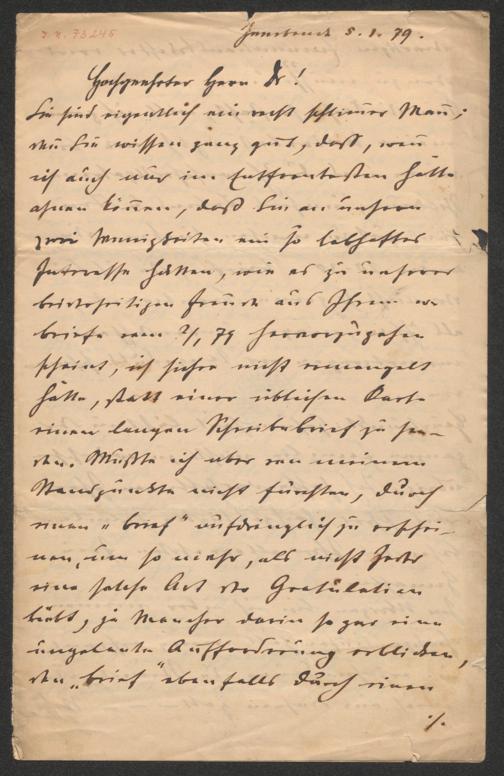 I.N. 73245
Innsbruck 5.1.79.
Hochgeehrter Herr Dr!
Sie sind eigentlich ein recht schlimer Mañ;
deñ Sie wissen ganz gut, daß, weñ
ich auch nur im Entferntesten hätte
ahnen köñen, daß Sie an unsern
zwei Wenigkeiten ein so lebhaftes
Interesse hätten, wie es zu unserer
beiderseitigen Freude aus Ihrem
briefe vom 2/1 79 hervorzugehen
scheint, ich sicher nicht ermangelt
hätte, statt einer üblichen Karte
einen langen Schreibebrief zu sen-
den. Mußte ich aber von meinem
Standpunkte nicht fürchten, durch
einen „brief" aufdringlich zu erschei-
nen, um so mehr, als nicht Jeder
eine solche Art der Gratulation
liebt, ja Mancher darin sogar eine
ungalante Aufforderung erblicken,
den „brief" ebenfalls durch einen
./.